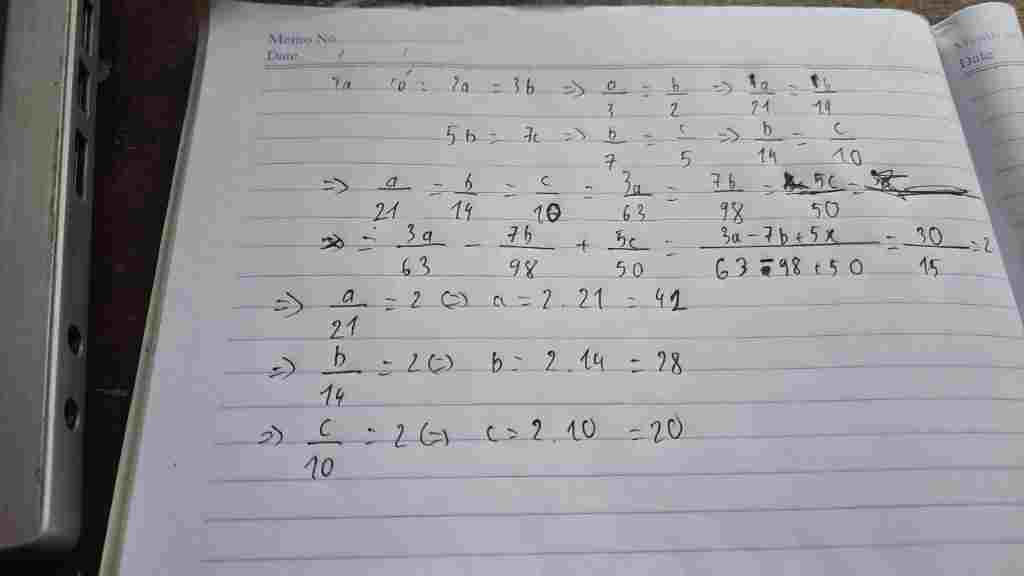 Memo No
Date
Ta có: 2a = 3b => a/3 = b/2 => a/21 = b/14
5b = 7c => b/7 = c/5 => b/14 = c/10
=> a/21 = b/14 = c/10 = 3a/63 = 7b/98 = 5c/50 =
= 3a/63 - 7b/98 + 5c/50 = 3a-7b+5x/63-98+50 = 30/15 = 2
=> a/21 = 2 (=) a = 2.21 = 42
=> b/14 = 2 (=) b = 2.14 = 28
=> c/10 = 2 (=) c = 2.10 = 20
Date